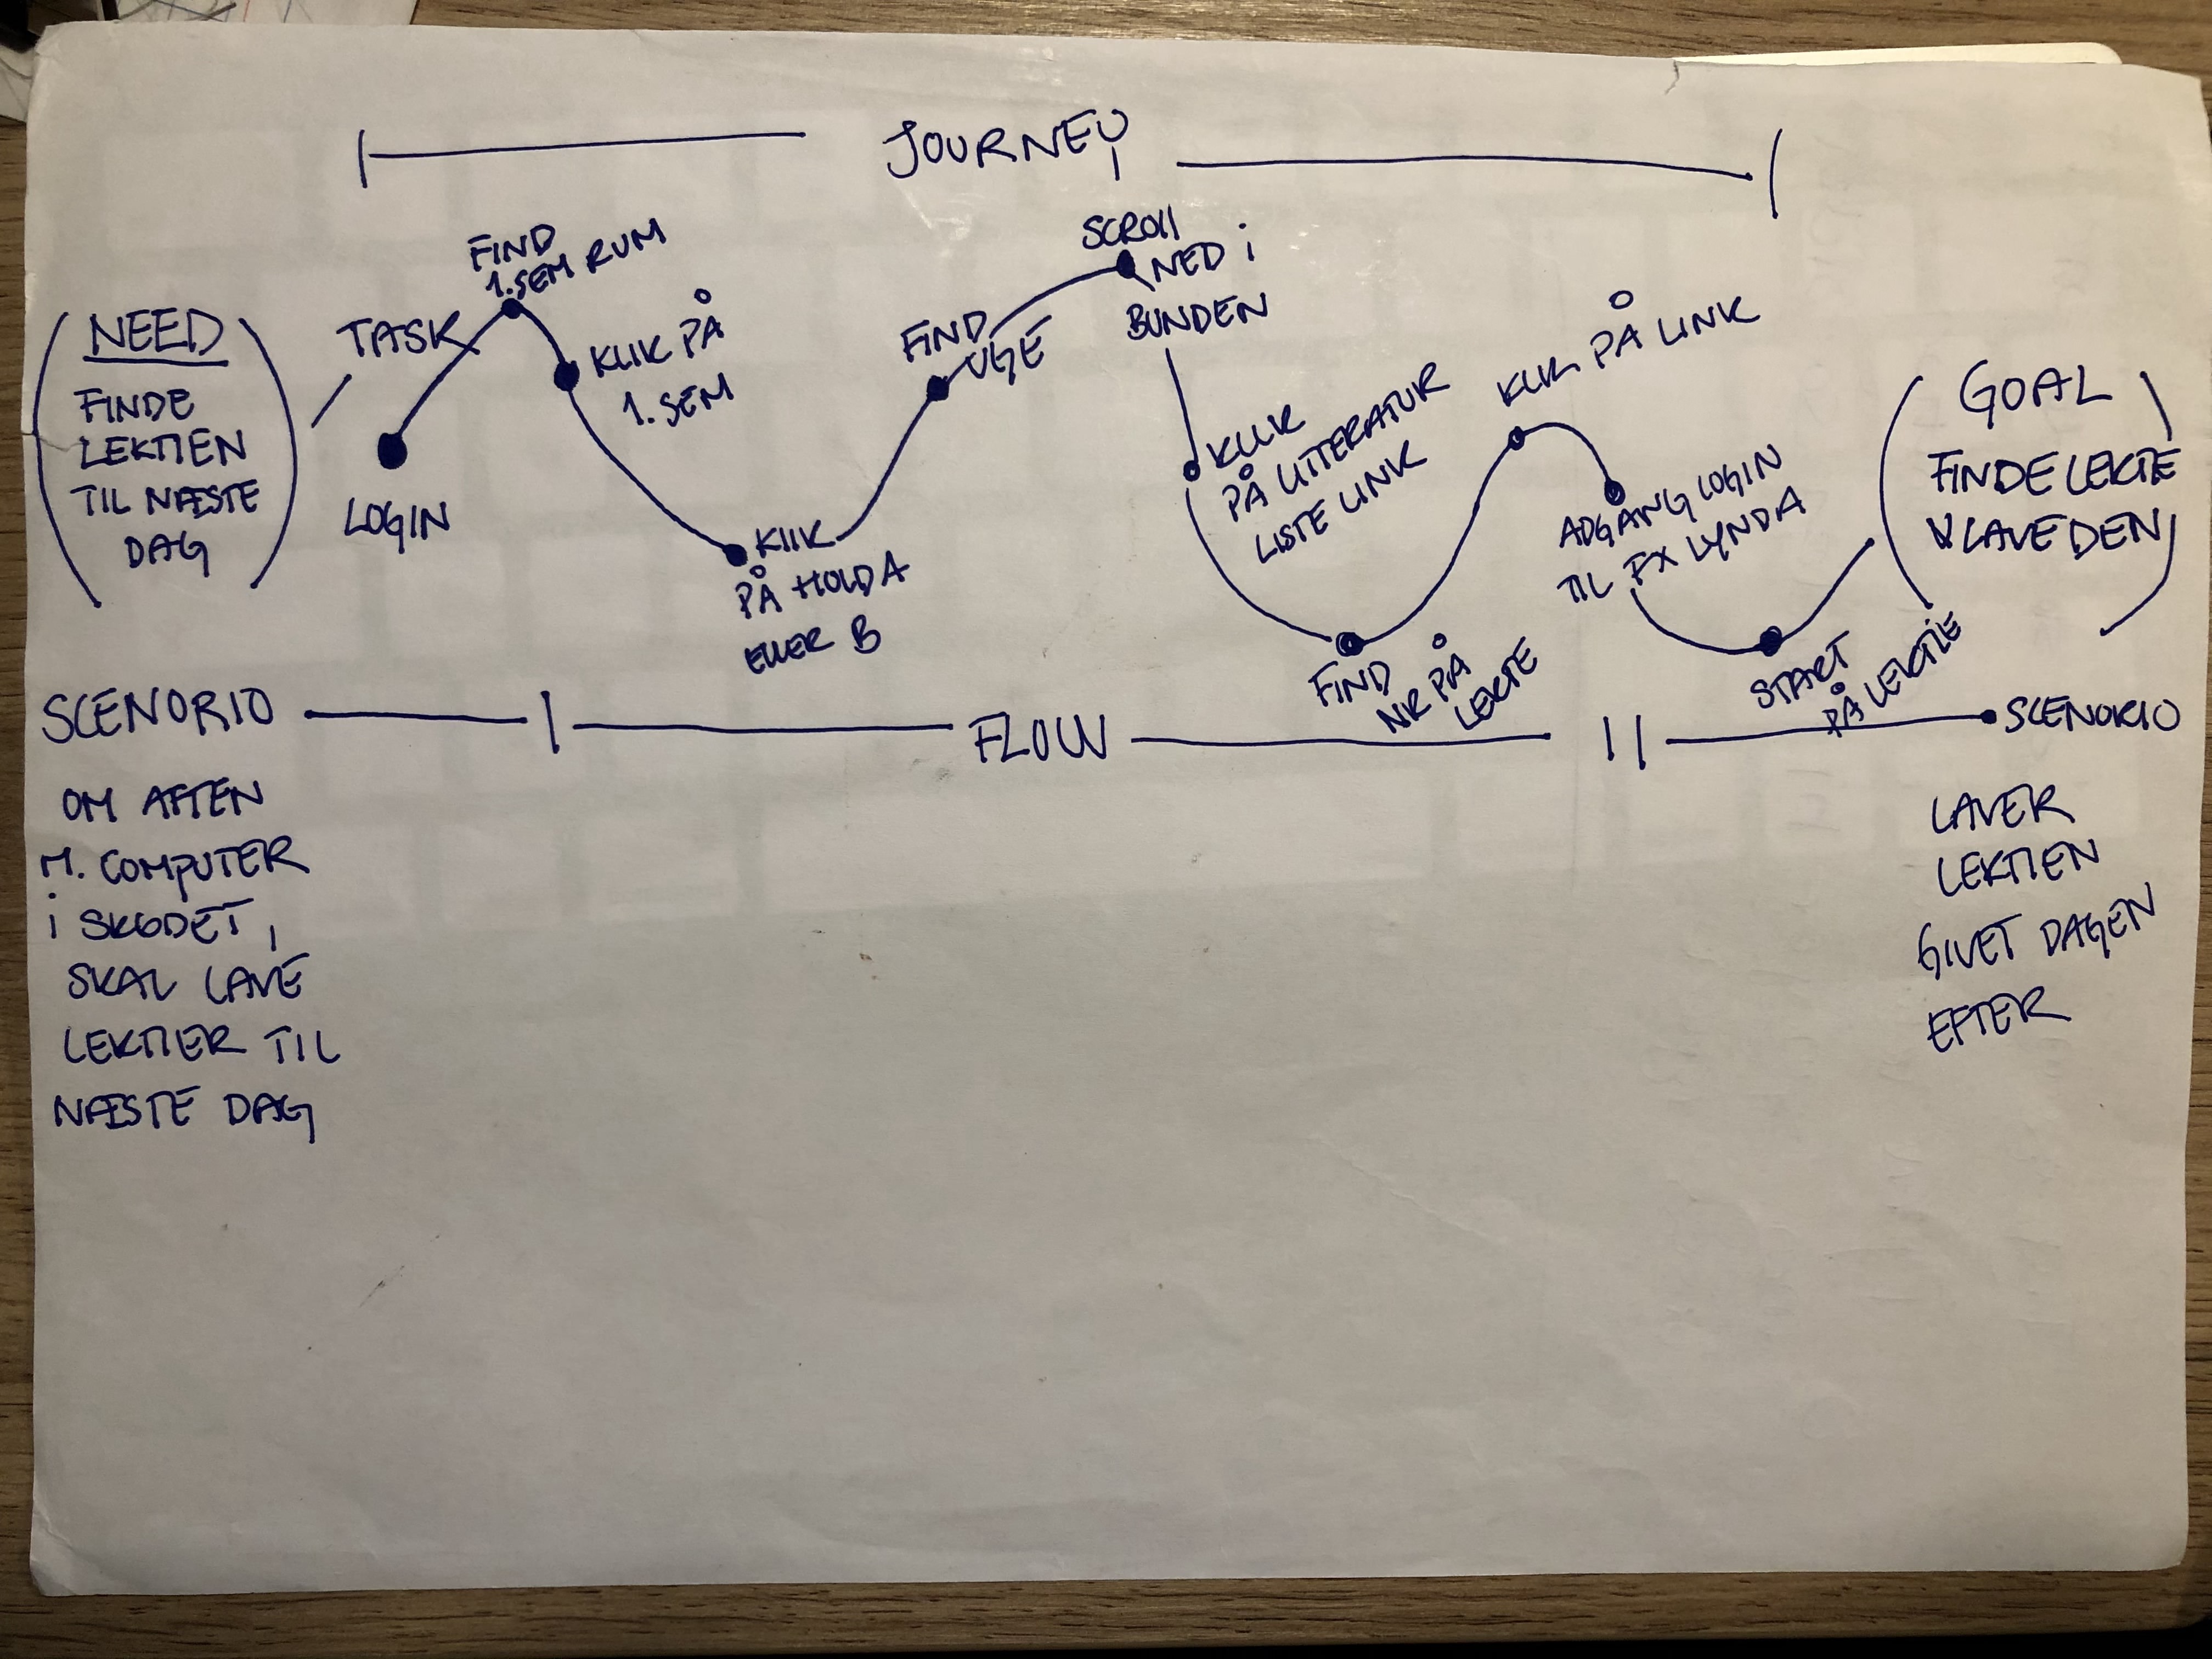 JOURNEY
NEED
FINDE
LEKTIEN
TIL NÆSTE
DAG
TASK
LOGIN
FIND
1.SEM RUM
KLIK PÅ
1.SEM
KLIK
PÅ HOLD A
ELLER B
FIND
UGE
SCROLL
NED i
BUNDEN
KLIK
PÅ LITTERATUR
LISTE LINK
FIND
NR PÅ
LEKTIE
KLIK PÅ LINK
ADGANG LOGIN
TIL FX LYNDA
START
PÅ LEKTIE
GOAL
FINDE LEKTIE
LAVE DEN
SCENORIO
FLOW
SCENORIO
OM AFTEN
M. COMPUTER
i SKØDET,
SKAL LAVE
LEKTIER TIL
NÆSTE DAG
LAVER
LEKTIEN
GIVET DAGEN
EFTER